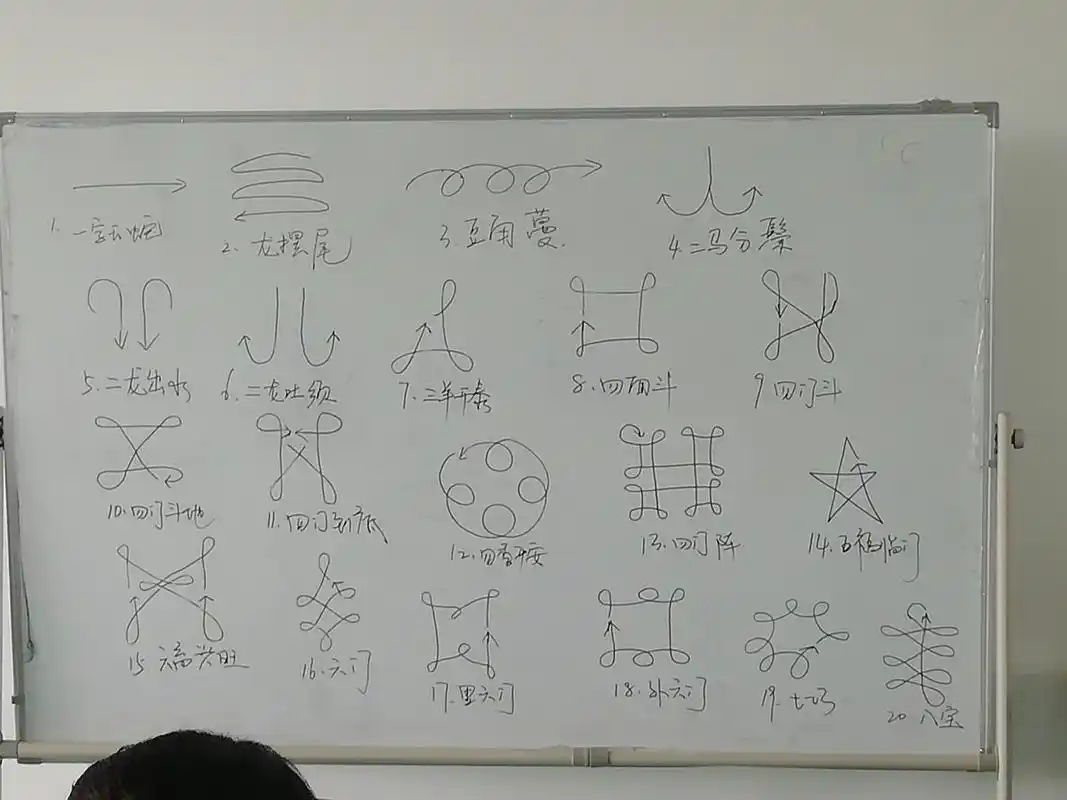 1.一字长蛇
2.龙摆尾
3.豆角蔓.
4.二马分鬃
5.二龙出水
6.二龙吐须
7.三羊开泰
8.四角斗
9.四门斗
10.四门斗地
11.四门到底
12.四香开
13.四门阵
14.五福临门
15六畜兴旺
16.六门
17.里六门
18.外六门
19.七巧
20.八宝